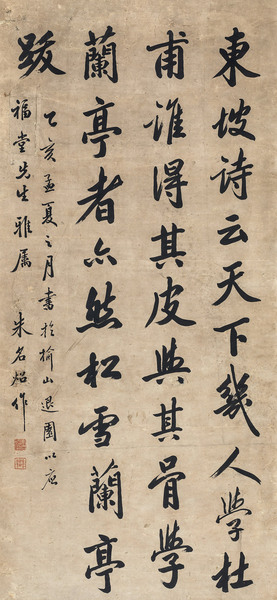 東坡诗云天下幾人學杜
甫誰得其皮與其骨學
蘭亭者亦然松雪蘭亭
跋
乙亥孟夏之月書於榆山退園以應
福堂先生雅属
朱名炤作